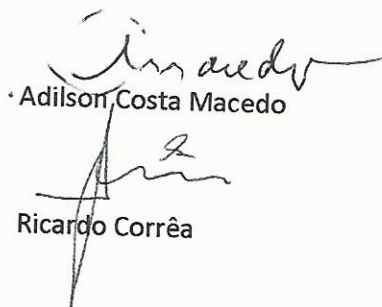 Adilson Costa Macedo
Ricardo Corrêa